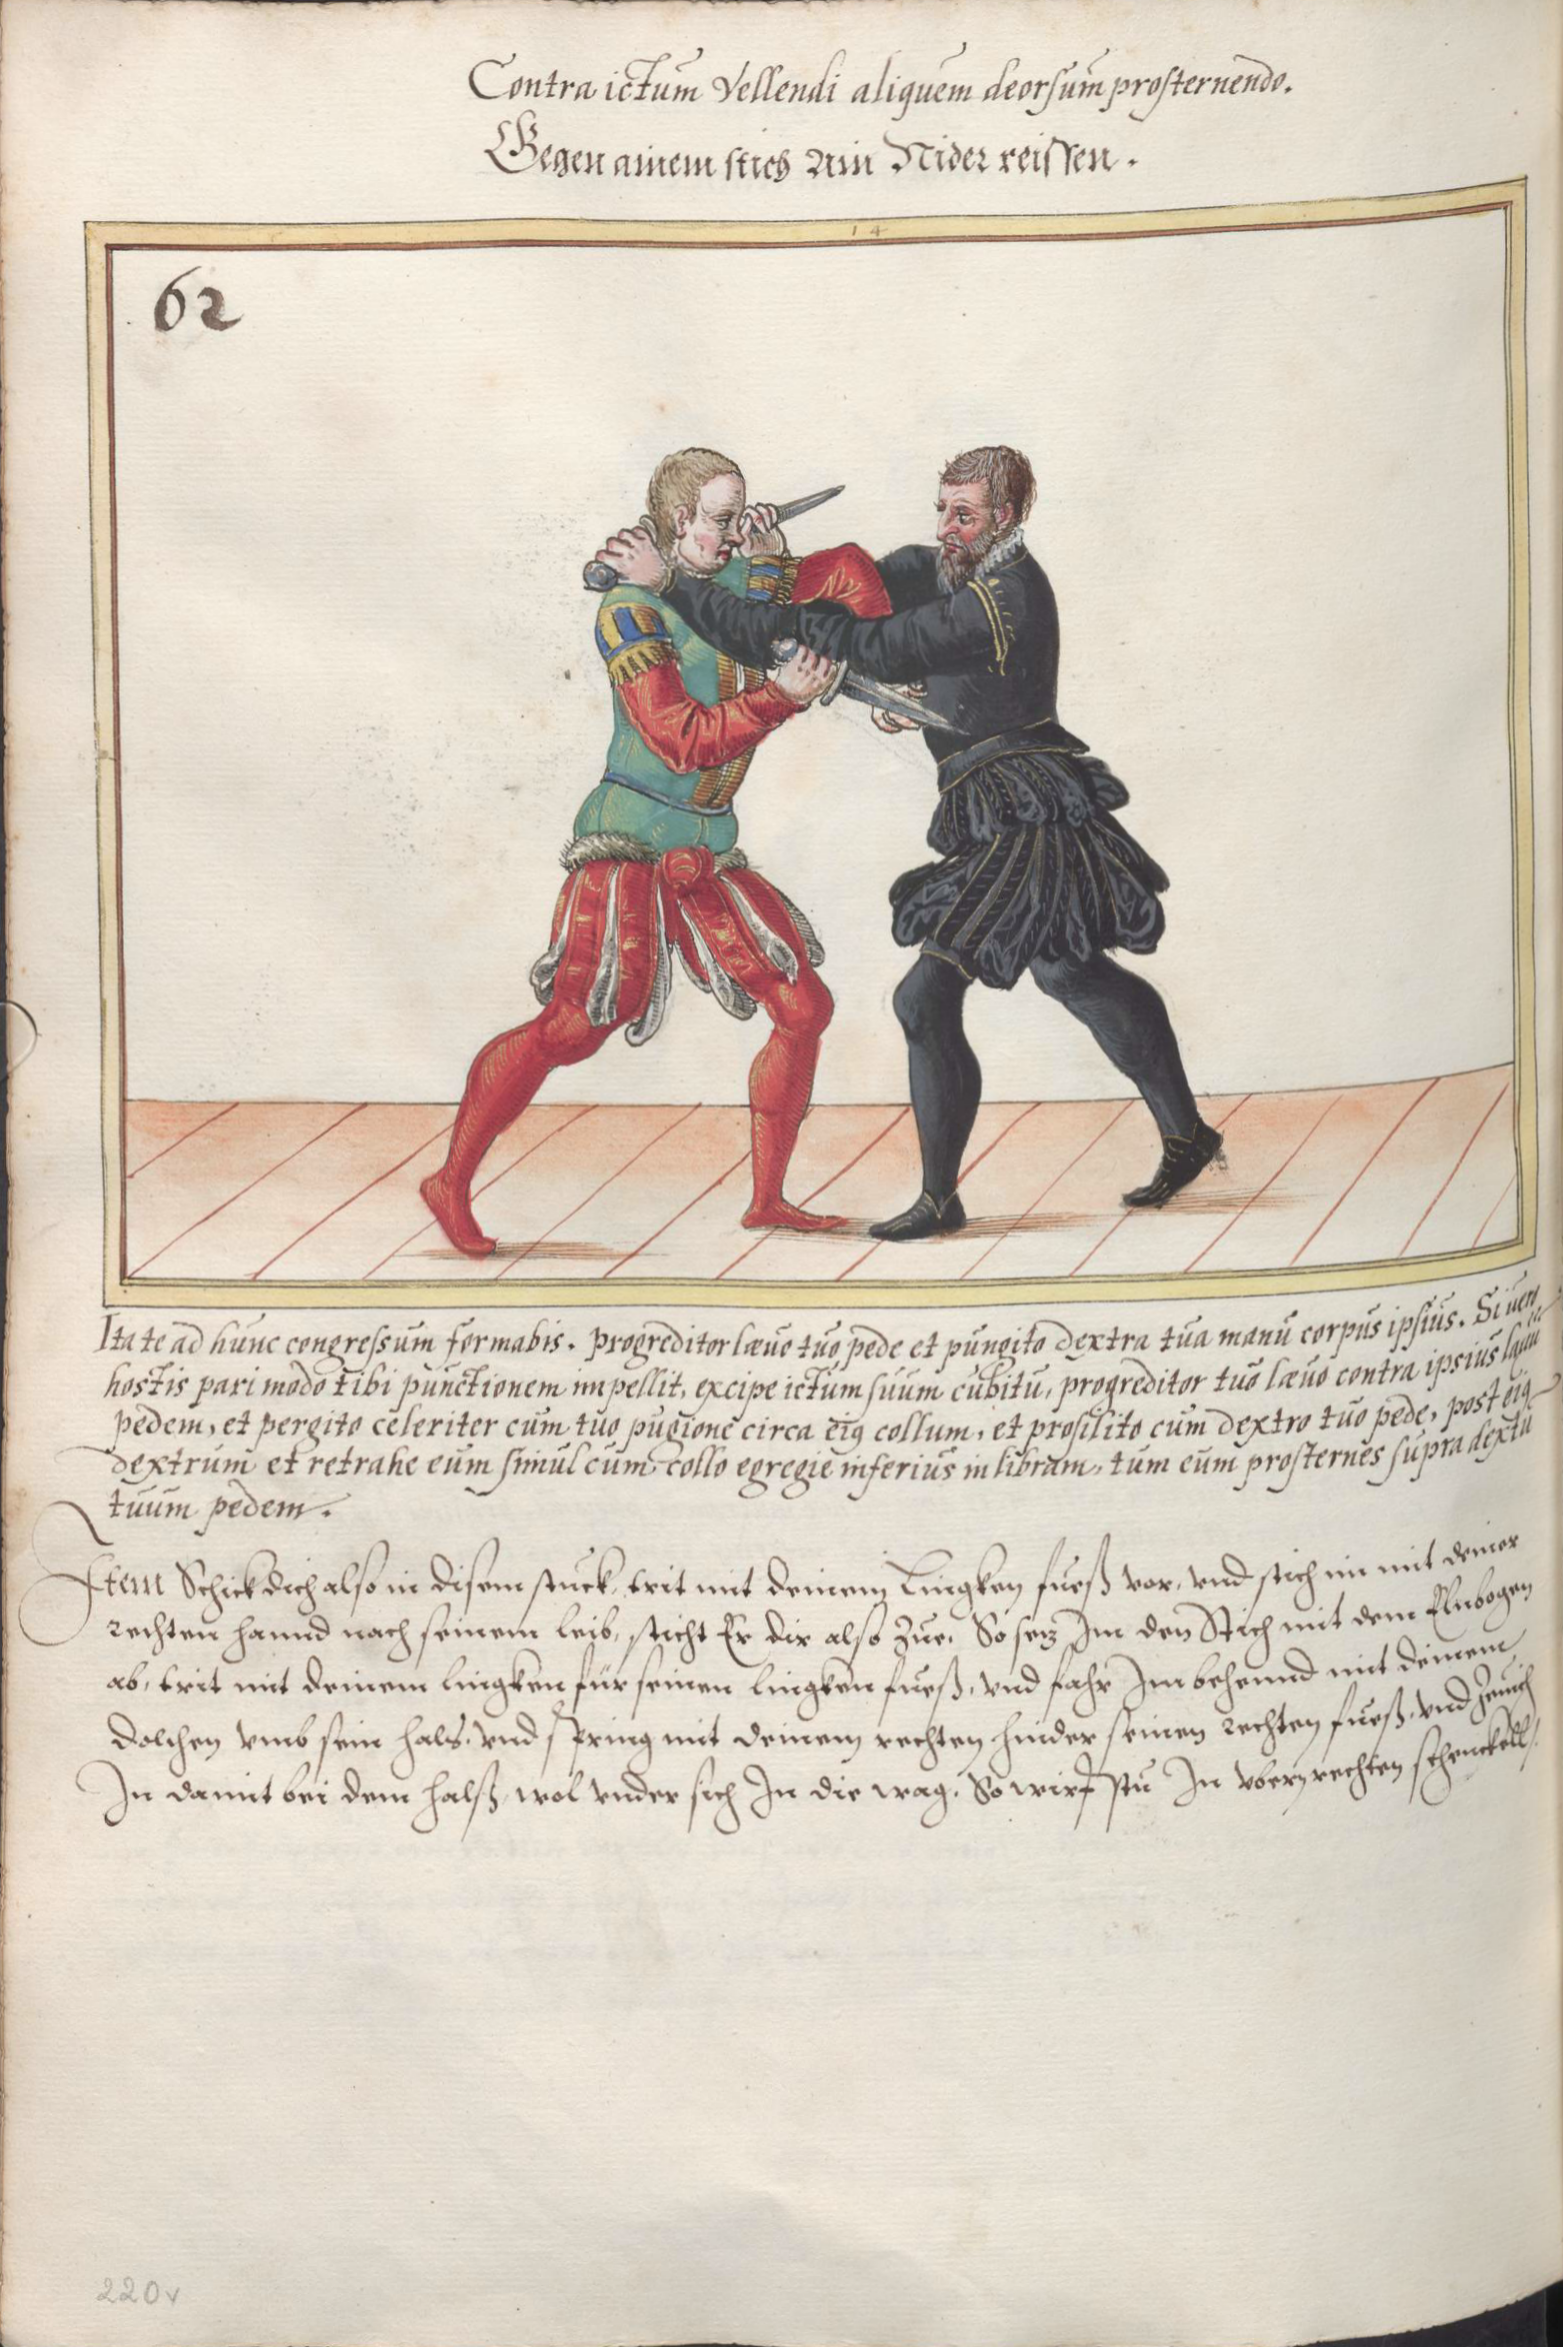 Contra ictum Vellendi aliquem deorsum prosternendo.
Gegen ainem stich Ain Nider reissen.
14
62
Ita te ad hunc congressum formabis. progreditor lævo tuo pede et pungito dextra tua manu corpus ipsius. Si vero
hostis pari modo tibi punctionem impellit, excipe ictum suum cubitu, progreditor tuo lævo contra ipsius
pedem, et pergito celeriter cum tuo pugione circa eiꝰ collum, et prosilito cum dextro tuo pede, post eiꝰ
dextrum et retrahe eum simul cum collo egregie inferius in libram, tum eum prosternes supra dextrū
tuum pedem.
Item Schick dich also in disem stuck, trit mit deinem Lingken fueß vor, vnd stich im mit deiner
rechten hannd nach seinem leib, sticht Er dir also zue. So setz Im den Stich mit dem Elnbogen
ab, trit mit deinem lingken für seinen lingken fueß, vnd fahr Im behennd mit deinem
dolchen vmb sein hals, vnd spring mit deinem rechten hinder seinen rechten fueß, vnd
In damit bei dem halß, wol vnder sich In die wag. So wirfstu In vbern rechten schenckell.
220v